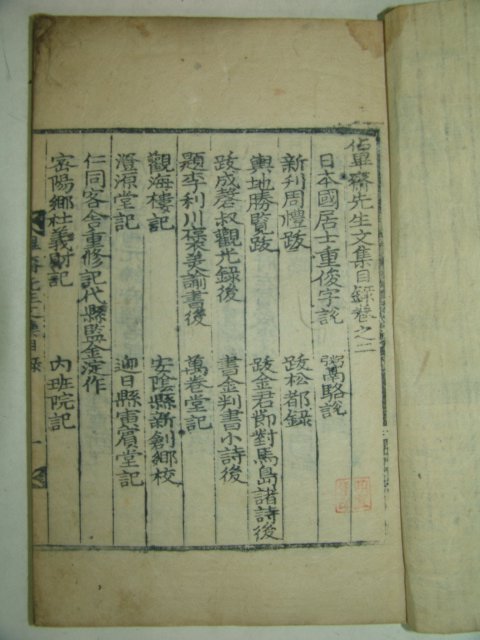 佔畢齋先生文集目錄卷之二
日本國居士重俊字說 粥鬲駱說
新刊周禮跋 跋松都錄
輿地勝覽跋 跋金君節對馬島諸詩後
跋成磬叔觀光錄後 書金判書小詩後
題李利川褒美諭書後 萬卷堂記
觀海樓記 安陰縣新創鄉校
澄源堂記 迎日縣寅賓堂記
仁同客舍重修記代縣監金淀作
密陽鄉社義財記 內班院記
畢齋先生文集目錄 一